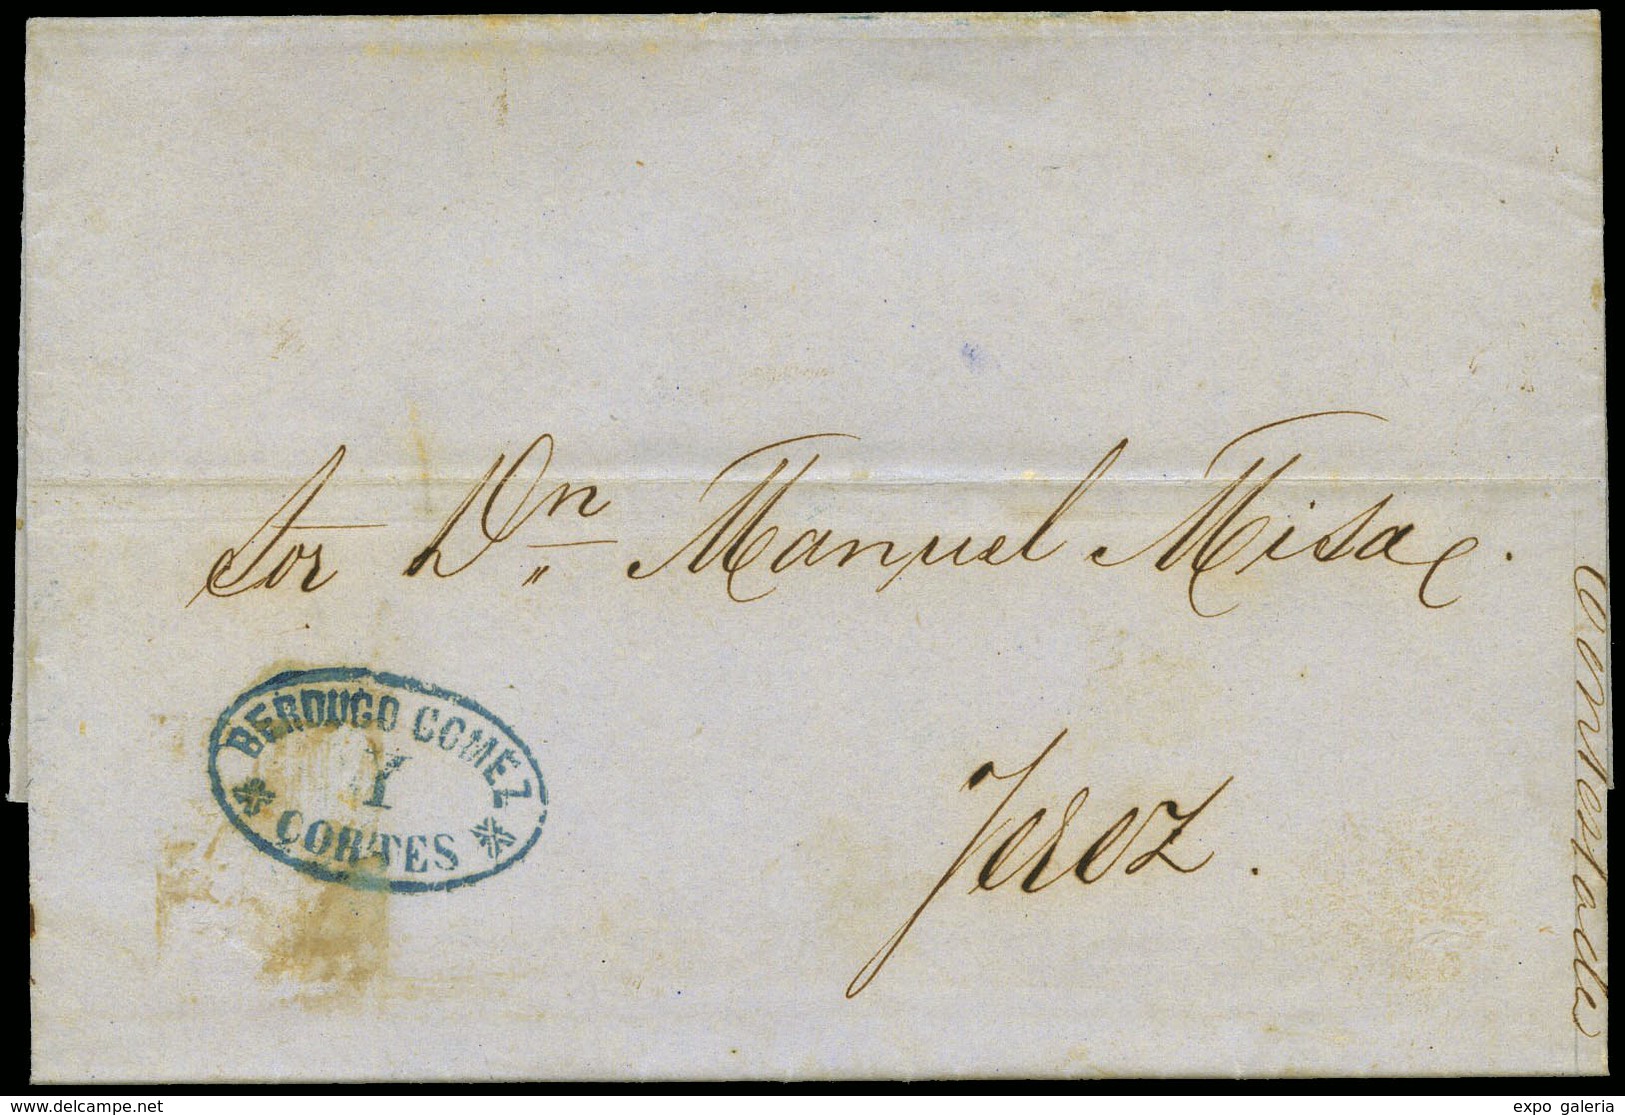 Sor Dn Manuel Misa
Jerez.
BERDUGO GOMEZ
Y
CORTES
Contestada
www.delcampe.net
expo galeria